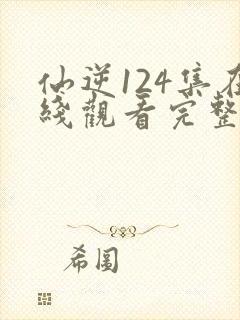 仙逆124集在
綫觀看完整
希圖